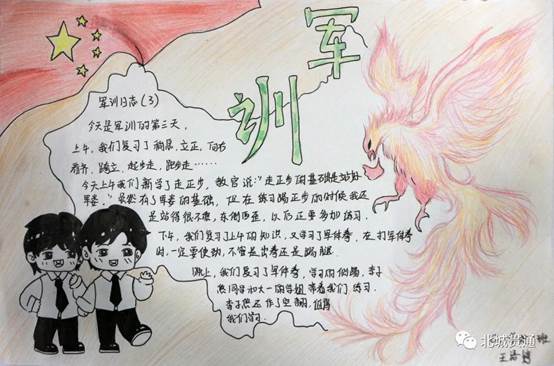 军训
军训日志(3)
今天是军训的第三天,
上午,我们复习了稍息,立正,向右
看齐,跨立,起步走,跑步走……
今天上午我们新学了走正步,教官说:"走正步的基础是站好
军姿。"虽然有了军姿的基础,但在练习踢正步的时候我还
是站得很不稳,东倒西歪,以后还要多加练习。
下午,我们复习了上午的知识,又学习了军体拳,在打军体拳
时,一定要使劲,不管是出拳还是踢腿。
晚上,我们复习了军体拳,学习的侧踢,李子
同学和大一的学姐带着我们练习。
李子 还作了空翻,值得
我们学习。
班
王
北城贯通